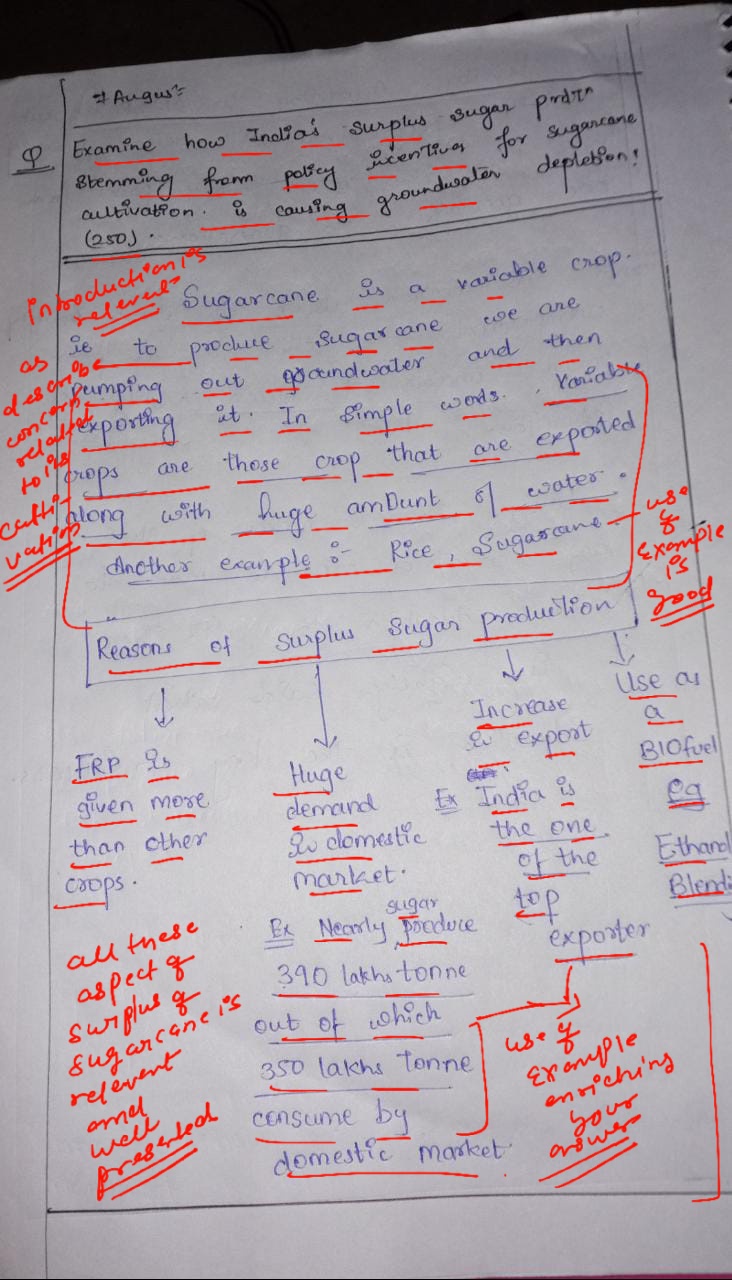 7 Augus
Q Examine how India's surplus sugar prdtn
stemming from policy icentives for sugarcane
cultivation. is causing groundwater depletion!
(250).
introduction is
relevent
as
describe
concern
related
to its
culti-
vation
Sugarcane is a variable crop.
ie to produce sugarcane we are
pumping out groundwater and then
exporting it. In simple words. Variable
crops are those crop that are exported
along with huge amount of water.
Another example :- Rice, Sugarcane
use
of
example
is
good
Reasons of surplus sugar production
FRP is
given more
than other
crops.
Huge
demand
in domestic
market.
Ex Nearly sugar produce
390 lakhs tonne
out of which
350 lakhs tonne
consume by
domestic market
Increase
in export
Ex India is
the one
of the
top
exporter
Use as
a
BIOfuel
eg
Ethanol
Blendi
all these
aspect of
surplus of
sugarcane is
relevent
and
well
presented
use of
example
enriching
your
answer